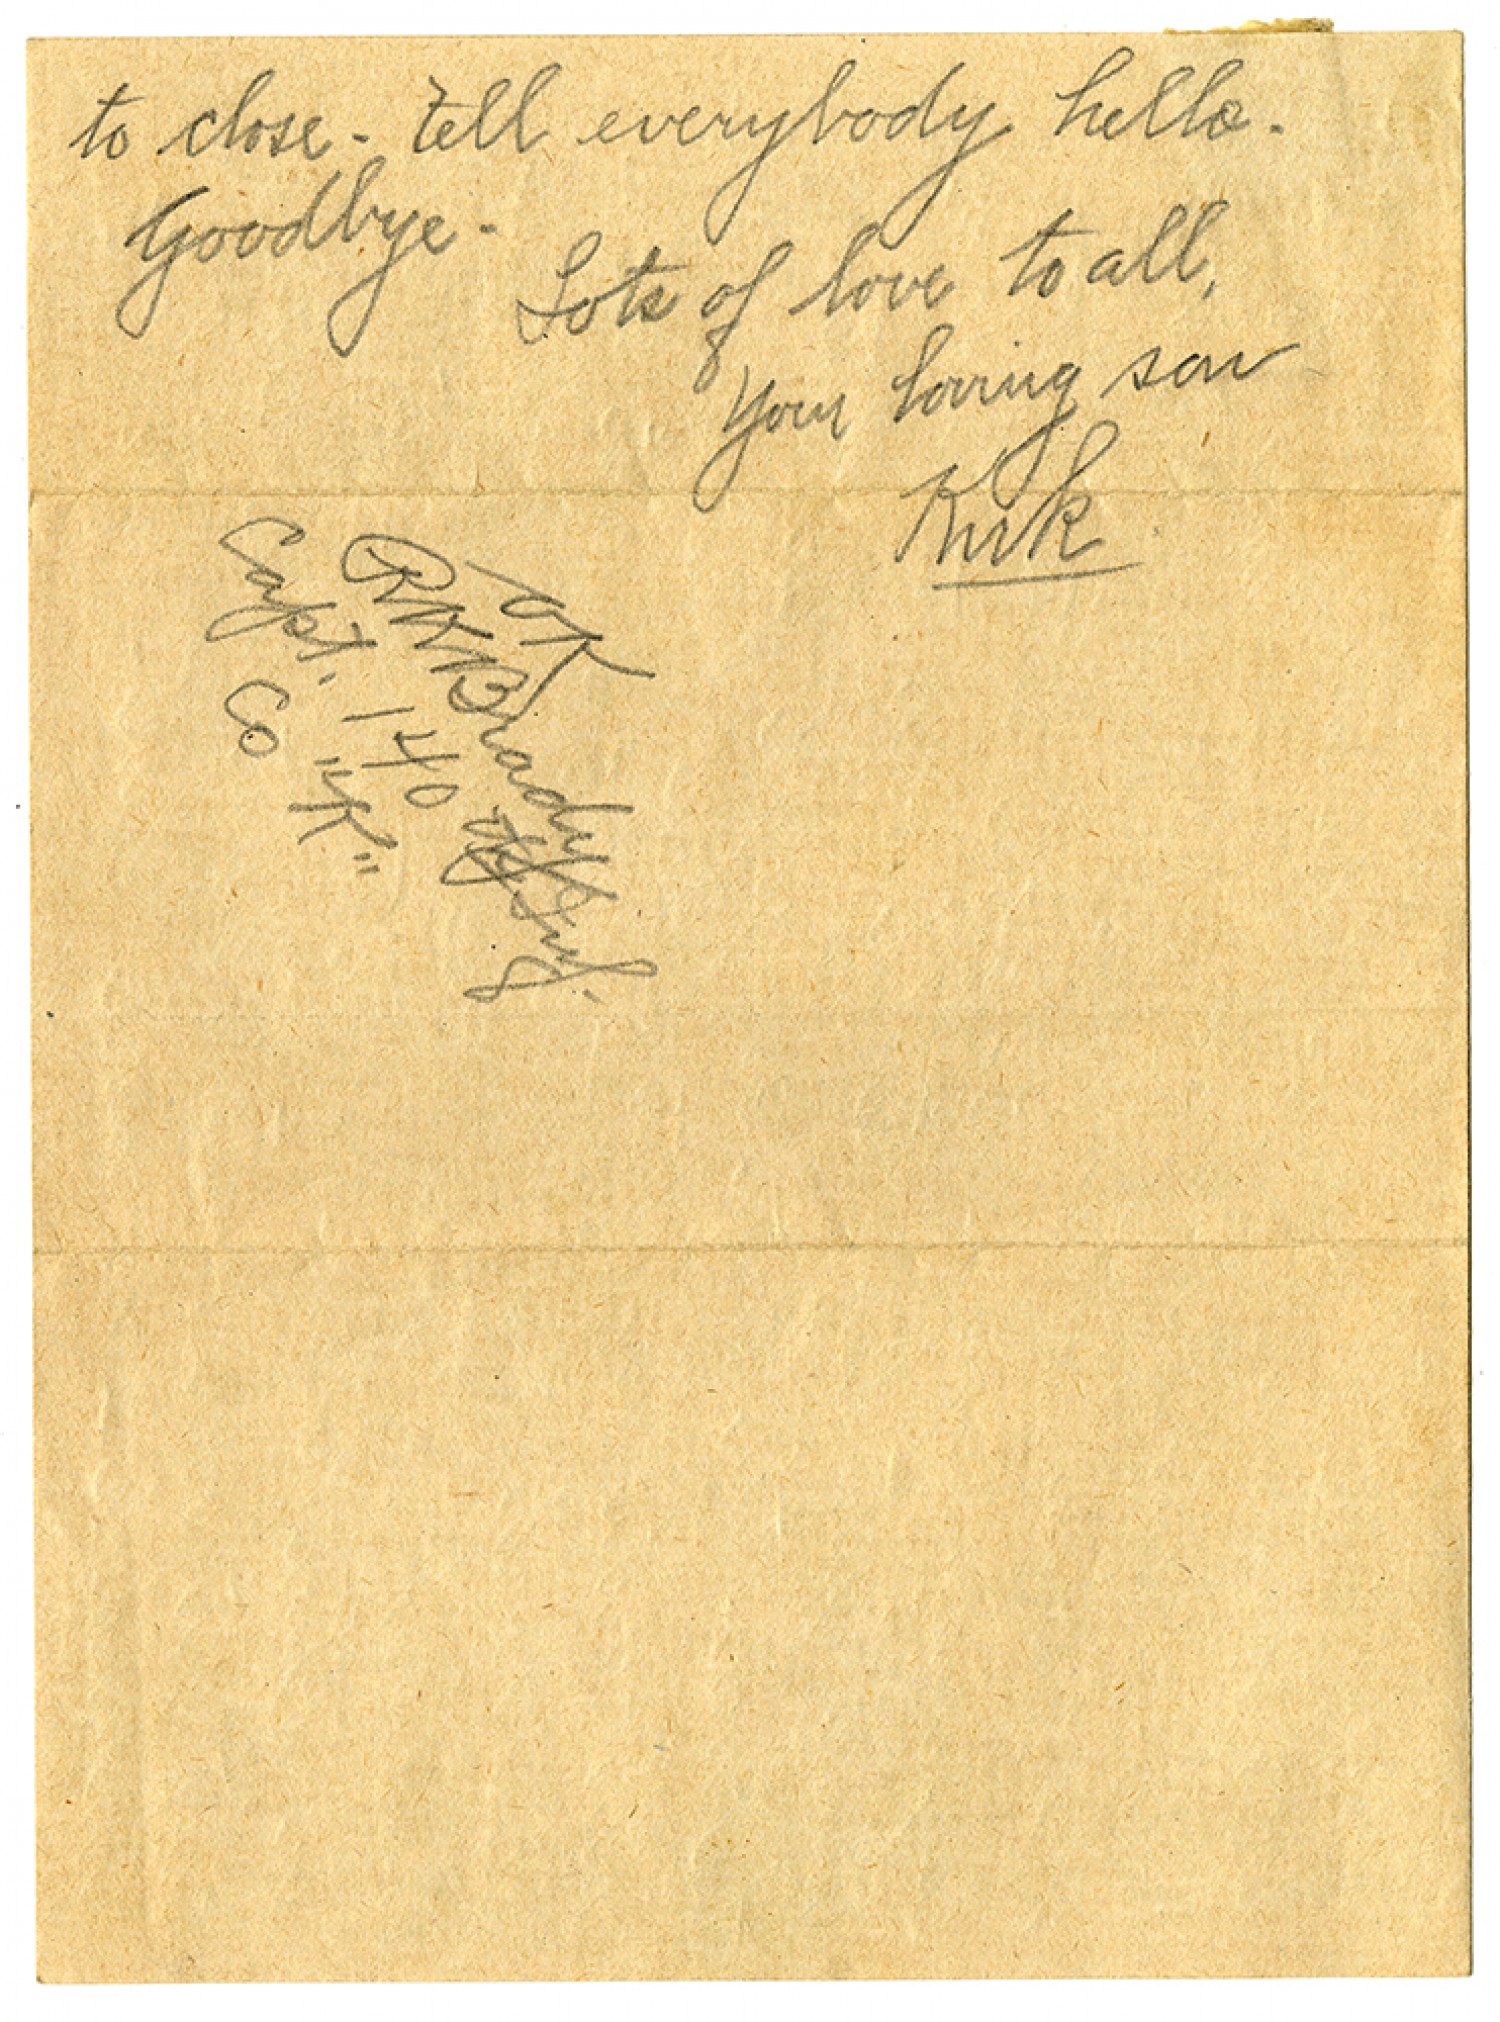 to close - tell everybody hello.
Goodbye -
Lots of love to all,
Your loving son
Kirk
OK
RW Brady
Capt. 140 Inf.
Co "K"